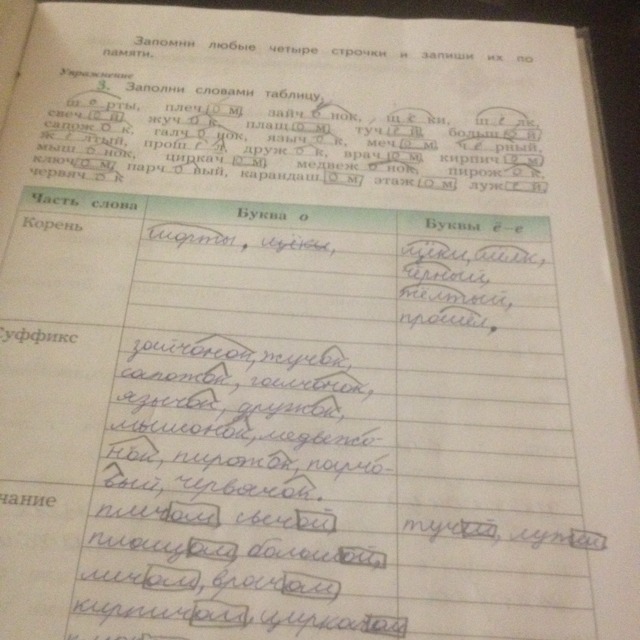 Запомни любые четыре строчки и запиши их по
памяти.
Упражнение
3. Заполни словами таблицу.
шорты, плечом, зайчонок, щёки, шёлк,
свечой, жучок, плащом, тучей, большой,
сапожок, галчонок, язычок, мечом, чёрный,
жёлтый, прошёл, дружок, врачом, кирпичом,
мышонок, циркачом, медвежонок, пирожок,
ключом, парчовый, карандашом, этажом, лужей,
червячок
Часть слова Буква о Буквы ё–е
Корень шорты, щёки, щёки, шёлк,
чёрный,
жёлтый,
прошёл.
Суффикс
зайчонок, жучок,
сапожок, галчонок,
язычок, дружок,
мышонок, медвежо-
нок, пирожок, парчо-
вый, червячок.
чание плечом, свечой тучей, лужей
плащом, большой,
мечом, врачом
кирпичом, циркачом